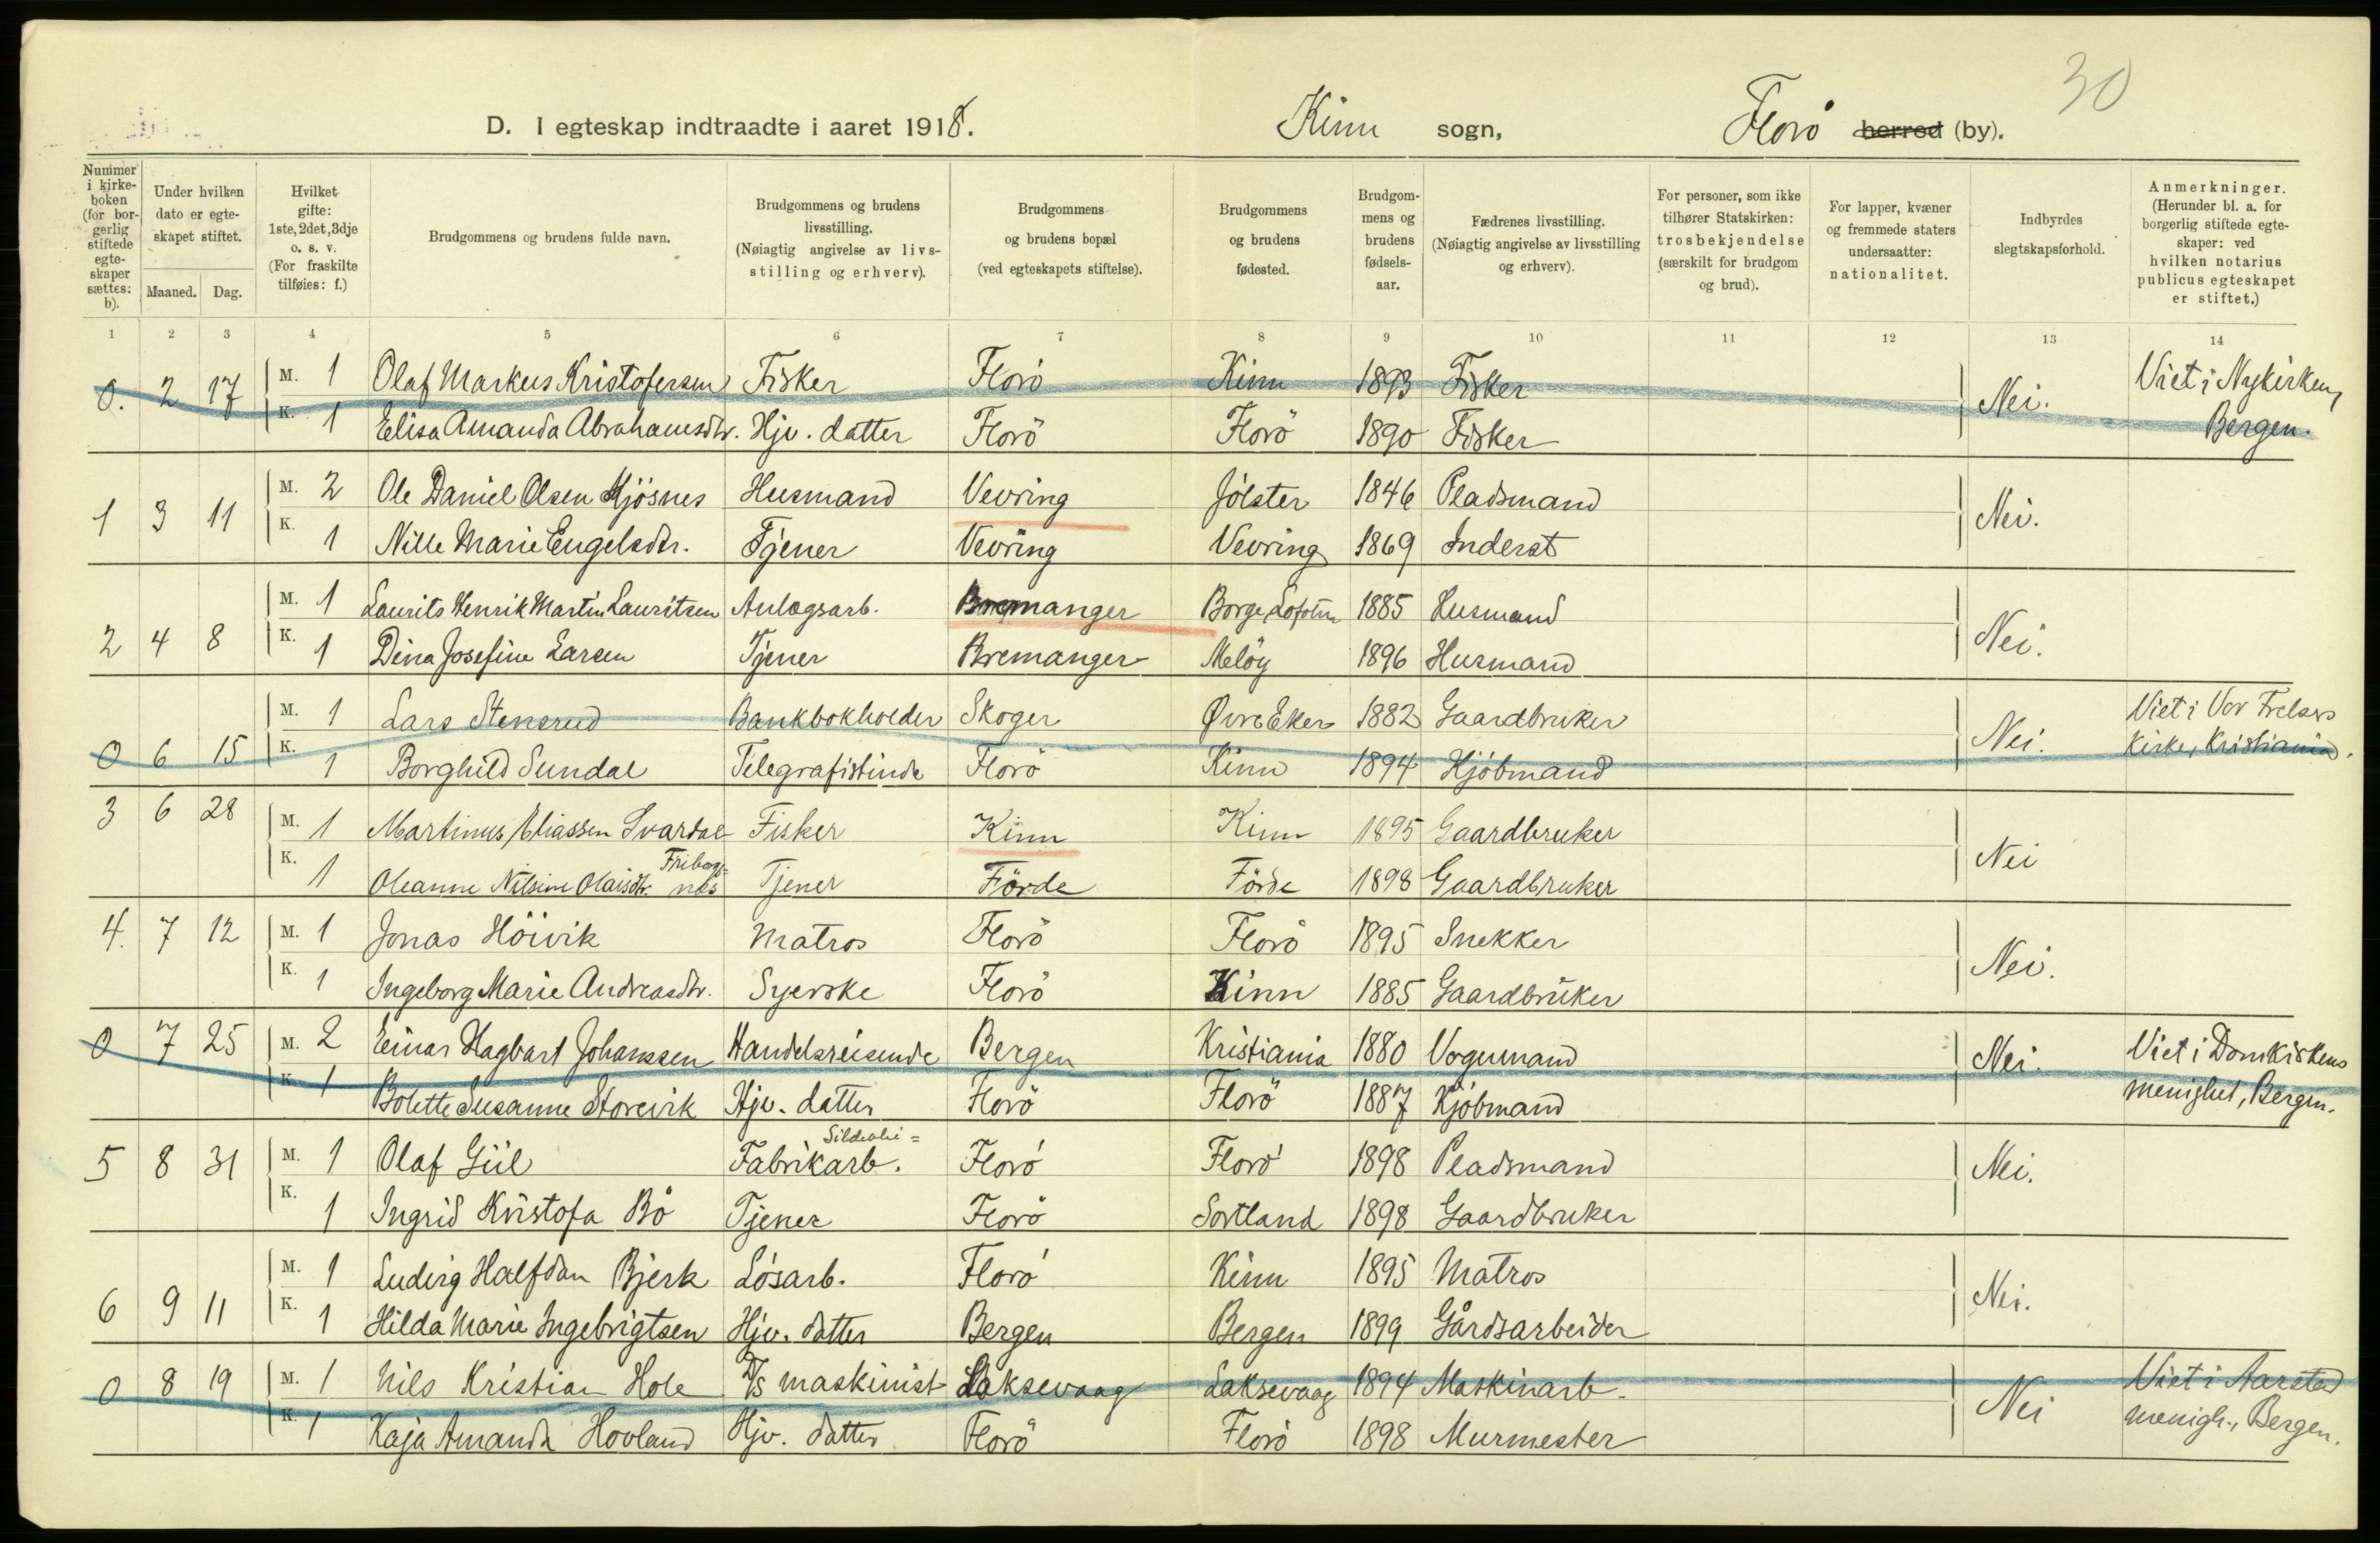 30
D. I egteskap indtraadte i aaret 1918. Kinn sogn, Florö herred (by).
Nummer i kirkeboken (for borgerlig stiftede egteskaper sættes: b).
Under hvilken dato er egteskapet stiftet.
Maaned. Dag.
Hvilket gifte: 1ste, 2det, 3dje o. s. v. (For fraskilte tilføies: f.)
Brudgommens og brudens fulde navn.
Brudgommens og brudens livsstilling. (Nøiagtig angivelse av livsstilling og erhverv).
Brudgommens og brudens bopæl (ved egteskapets stiftelse).
Brudgommens og brudens fødested.
Brudgommens og brudens fødselsaar.
Fædrenes livsstilling. (Nøiagtig angivelse av livsstilling og erhverv).
For personer, som ikke tilhører Statskirken: trosbekjendelse (særskilt for brudgom og brud).
For lapper, kvæner og fremmede staters undersaatter: nationalitet.
Indbyrdes slegtskapsforhold.
Anmerkninger. (Herunder bl. a. for borgerlig stiftede egteskaper: ved hvilken notarius publicus egteskapet er stiftet.)
1 2 3 4 5 6 7 8 9 10 11 12 13 14
0. 2 17 M. 1 Olaf Markus Kristofersen Fisker Florö Kinn 1893 Fisker Nei. Viet i Nykirken,
K. 1 Elisa Amanda Abrahamsdtr. Hjv. datter Florö Florö 1890 Fisker Bergen.
1 3 11 M. 2 Ole Daniel Olsen Hjösnes Husmand Vevring Jölster 1846 Pladsmand Nei.
K. 1 Nille Marie Engelsdtr. Tjener Vevring Vevring 1869 Inderst
2 4 8 M. 1 Laurits Henrik Martin Lauritsen Anlægsarb. Bremanger Borge Lofoten 1885 Husmand Nei.
K. 1 Dina Josefine Larsen Tjener Bremanger Melöy 1896 Husmand
0 6 15 M. 1 Lars Stensrud Bankbokholder Skoger Øvre Eker 1882 Gaardbruker Nei. Viet i Vor Frelsers
K. 1 Borghild Sundal Telegrafistinde Florö Kinn 1894 Kjöbmand Kirke, Kristiania.
3 6 28 M. 1 Martinus Eliassen Svardal Fisker Kinn Kinn 1895 Gaardbruker Nei
K. 1 Oleanne Nilsine Olaisdtr. Friborgnes Tjener Förde Förde 1898 Gaardbruker
4. 7 12 M. 1 Jonas Höivik Matros Florö Florö 1895 Snekker Nei.
K. 1 Ingeborg Marie Andreasdtr. Syerske Florö Kinn 1885 Gaardbruker
0 7 25 M. 2 Einar Hagbart Johanssen Handelsreisende Bergen Kristiania 1880 Vognmand Nei. Viet i Domkirkens
K. 1 Bolette Susanne Storevik Hjv. datter Florö Florö 1887 Kjöbmand menighet, Bergen.
5 8 31 M. 1 Olaf Giil Sildeolie= Fabrikarb. Florö Florö 1898 Pladsmand Nei.
K. 1 Ingrid Kristofa Bö Tjener Florö Sortland 1898 Gaardbruker
6 9 11 M. 1 Ludvig Halfdan Bjerk Lösarb. Florö Kinn 1895 Matros Nei.
K. 1 Hilda Marie Ingebrigtsen Hjv. datter Bergen Bergen 1899 Gårdsarbeider
0 8 19 M. 1 Nils Kristian Hole D/s maskinist Laksevaag Laksevaag 1894 Maskinarb. Nei Viet i Aarstad
K. 1 Kaja Amanda Hovland Hjv. datter Florö Florö 1898 Murmester menigh., Bergen.